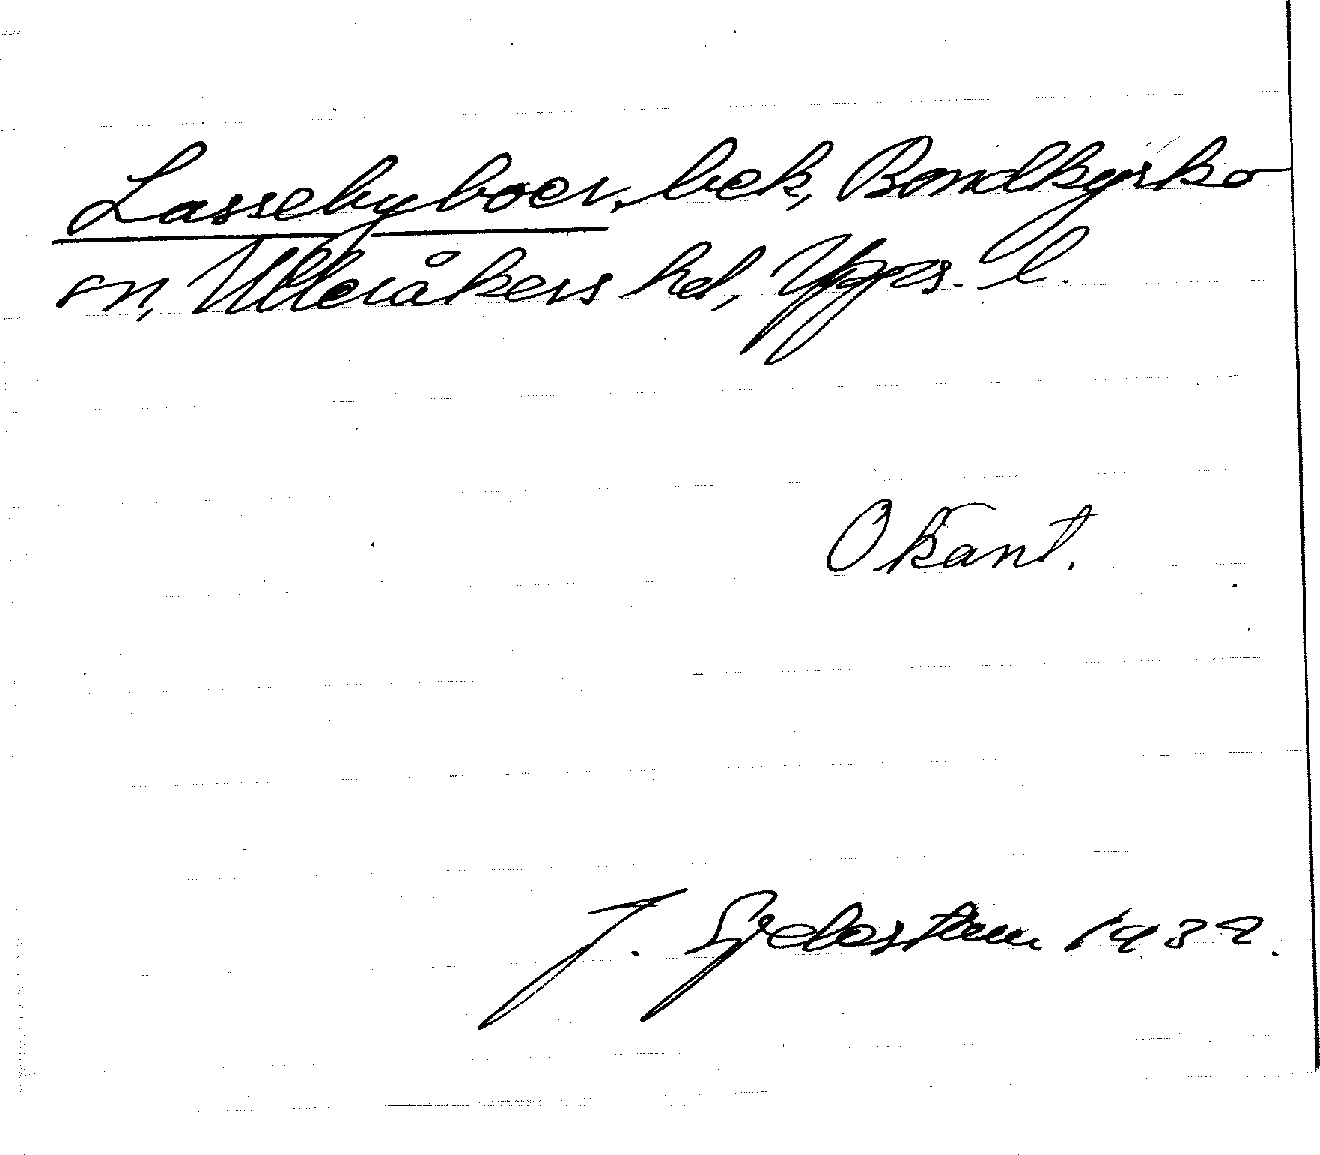 Lassebyboer, bek, Bondkyrko
sn, Ulleråkers hd, Upps. l.
Okänt.
J. Sjebostam 1932.